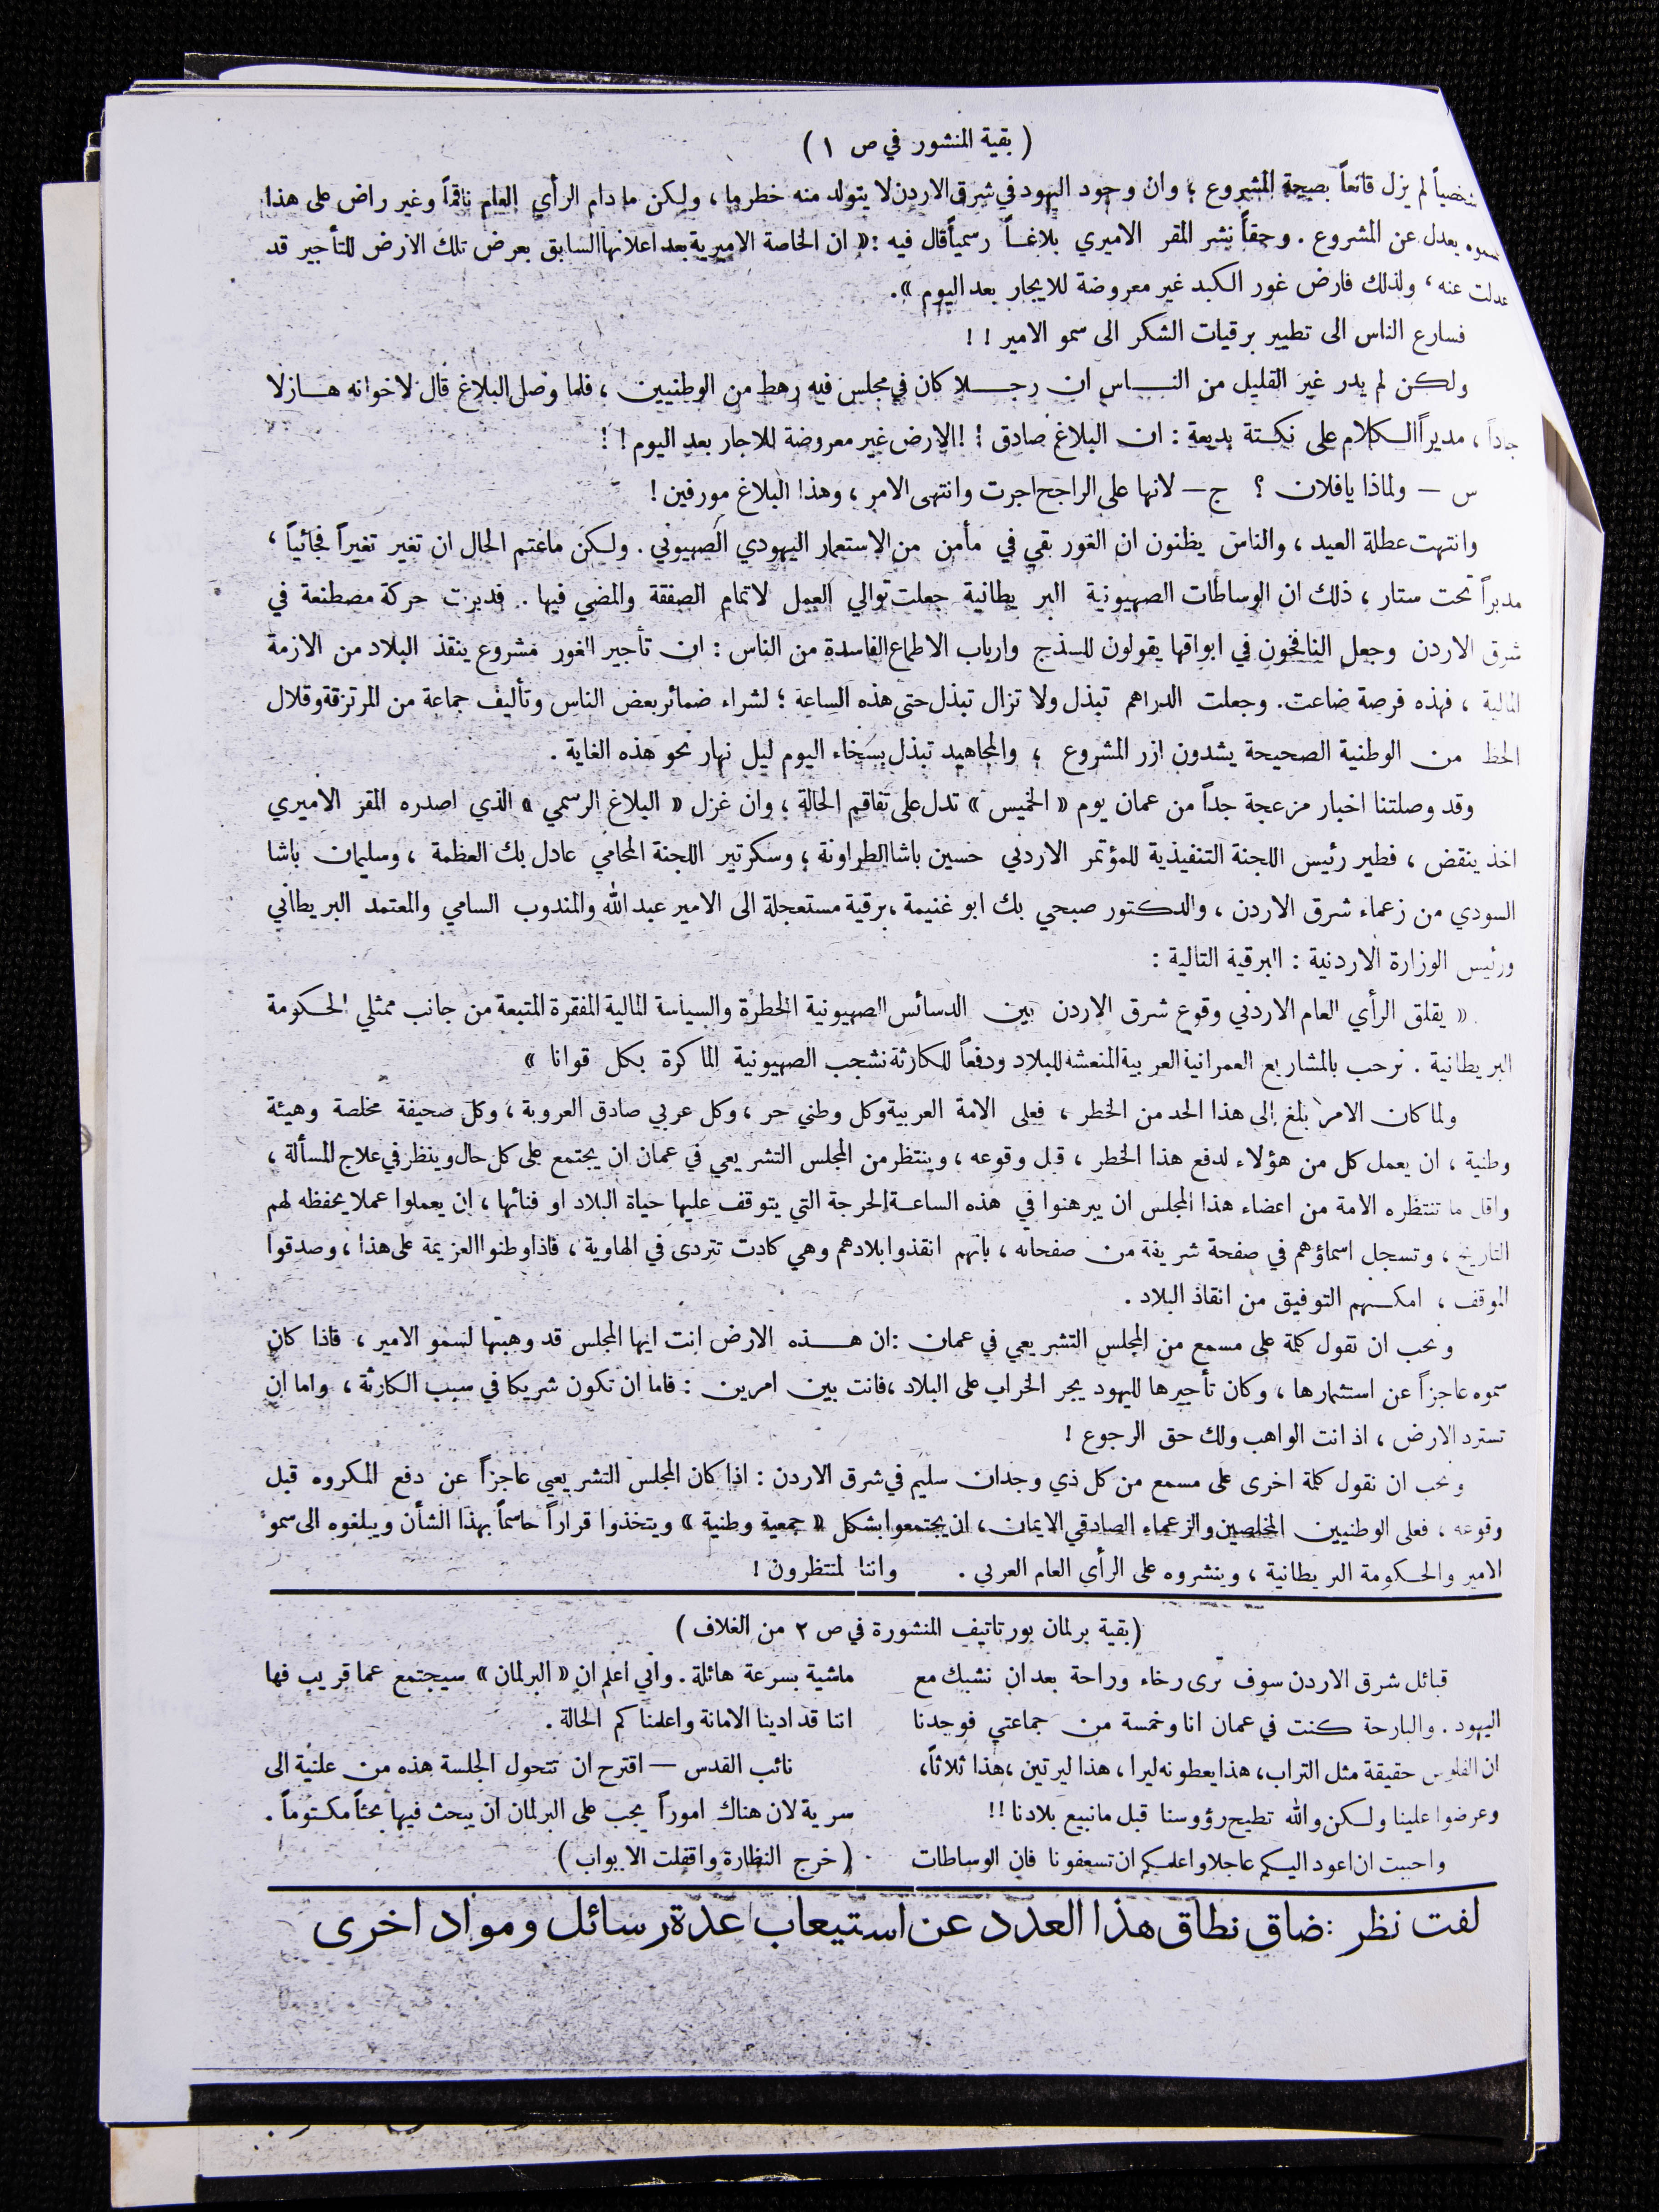 ( بقية المنشور في ص ١ )
شخصياً لم يزل قانعاً بصحة المشروع ؛ وان وجود اليهود في شرق الاردن لا يتولد منه خطر ما ، ولكن ما دام الرأي العام ناقماً وغير راض على هذا
سموه يعدل عن المشروع . وحقاً نشر المقر الاميري بلاغاً رسمياً قال فيه : « ان الخاصة الاميرية بعد اعلانها السابق بعرض تلك الارض للتأجير قد
عدلت عنه ، ولذلك فارض غور الكبد غير معروضة للايجار بعد اليوم » .
فسارع الناس الى تطيير برقيات الشكر الى سمو الامير ! !
ولكن لم يدر غير القليل من النـاس ان رجـلا كان في مجلس فيه رهط من الوطنيين ، فلما وصل البلاغ قال لاخوانه هـازلا
جاداً ، مديراً الكلام على نكتة بديعة : ان البلاغ صادق ! ! الارض غير معروضة للاجار بعد اليوم ! !
س – ولماذا يافلان ؟ ج – لانها على الراجح اجرت وانتهى الامر ، وهذا البلاغ مورفين !
وانتهت عطلة العيد ، والناس يظنون ان الغور بقي في مأمن من الاستعمار اليهودي الصهيوني . ولكن ماعتم الحال ان تغير تغيراً فجائياً ،
مدبراً تحت ستار ، ذلك ان الوساطات الصهيونية البريطانية جعلت توالي العمل لاتمام الصفقة والمضي فيها . فدبرت حركة مصطنعة في
شرق الاردن وجعل النافخون في ابواقها يقولون للسذج وارباب الاطماع الفاسدة من الناس : ان تأجير الغور مشروع ينقذ البلاد من الازمة
المالية ، فهذه فرصة ضاعت . وجعلت الدراهم تبذل ولا تزال تبذل حتى هذه الساعة ؛ لشراء ضمائر بعض الناس وتأليف جماعة من المرتزقة وقلال
الحظ من الوطنية الصحيحة يشدون ازر المشروع ؛ والمجاهيد تبذل بسخاء اليوم ليل نهار نحو هذه الغاية .
وقد وصلتنا اخبار مزعجة جداً من عمان يوم « الخميس » تدل على تفاقم الحالة ؛ وان غزل « البلاغ الرسمي » الذي اصدره المقر الاميري
اخذ ينقض ، فطير رئيس اللجنة التنفيذية للمؤتمر الاردني حسين باشا الطراونة ؛ وسكرتير اللجنة المحامي عادل بك العظمة ، وسليمان باشا
السودي من زعماء شرق الاردن ، والدكتور صبحي بك ابو غنيمة ، برقية مستعجلة الى الامير عبد الله والمندوب السامي والمعتمد البريطاني
ورئيس الوزارة الاردنية : البرقية التالية :
« يقلق الرأي العام الاردني وقوع شرق الاردن بين الدسائس الصهيونية الخطرة والسياسة المالية المفقرة المتبعة من جانب ممثلي الحكومة
البريطانية . نرحب بالمشاريع العمرانية العربية المنعشة للبلاد ودفعاً للكارثة نشجب الصهيونية الماكرة بكل قوانا »
ولما كان الامر بلغ الى هذا الحد من الخطر ، فعلى الامة العربية وكل وطني حر ، وكل عربي صادق العروبة ، وكل صحيفة مخلصة وهيئة
وطنية ، ان يعمل كل من هؤلاء لدفع هذا الخطر ، قبل وقوعه ، وينتظر من المجلس التشريعي في عمان ان يجتمع على كل حال وينظر في علاج للمسألة ،
واقل ما تنتظره الامة من اعضاء هذا المجلس ان يبرهنوا في هذه الساعة الحرجة التي يتوقف عليها حياة البلاد او فنائها ، ان يعملوا عملا يحفظه لهم
التاريخ ، وتسجل اسماؤهم في صفحة شريفة من صفحاته ، بانهم انقذوا بلادهم وهي كادت تتردى في الهاوية ، فاذا وطنوا العزيمة على هذا ، وصدقوا
الموقف ، امكـنهم التوفيق من انقاذ البلاد .
ونحب ان نقول كلمة على مسمع من المجلس التشريعي في عمان : ان هـذه الارض انت ايها المجلس قد وهبتها لسمو الامير ، فاذا كان
سموه عاجزاً عن استثمارها ، وكان تأجيرها لليهود يجر الخراب على البلاد ، فانت بين امرين : فاما ان تكون شريكا في سبب الكارثة ، واما ان
تسترد الارض ، اذ انت الواهب ولك حق الرجوع !
ونحب ان نقول كلمة اخرى على مسمع من كل ذي وجدان سليم في شرق الاردن : اذا كان المجلس التشريعي عاجزاً عن دفع المكروه قبل
وقوعه ، فعلى الوطنيين المخلصين والزعماء الصادقي الايمان ، ان يجتمعوا بشكل « جمعية وطنية » ويتخذوا قراراً حاسماً بهذا الشأن ويبلغوه الى سمو
الامير والحكومة البريطانية ، وينشروه على الرأي العام العربي . واننا لمنتظرون !
( بقية برلمان بورتاتيف المنشورة في ص ٢ من الغلاف )
قبائل شرق الاردن سوف ترى رخاء وراحة بعد ان نشبك مع
اليهود . والبارحة كنت في عمان انا وخمسة من جماعتي فوجدنا
ان الفلوس حقيقة مثل التراب ، هذا يعطونه ليرا ، هذا ليرتين ، هذا ثلاثاً ،
وعرضوا علينا ولكن والله تطيح رؤوسنا قبل مانبيع بلادنا !!
واحببت ان اعود اليكم عاجلا واعلمكم ان تسعفونا فان الوساطات
ماشية بسرعة هائلة . واني اعلم ان « البرلمان » سيجتمع عما قريب فها
اننا قد ادينا الامانة واعلمناكم الحالة .
نائب القدس – اقترح ان تتحول الجلسة هذه من علنية الى
سرية لان هناك اموراً يجب على البرلمان ان يبحث فيها بحثاً مكتوماً .
( خرج النظارة واقفلت الابواب )
لفت نظر : ضاق نطاق هذا العدد عن استيعاب عدة رسائل ومواد اخرى